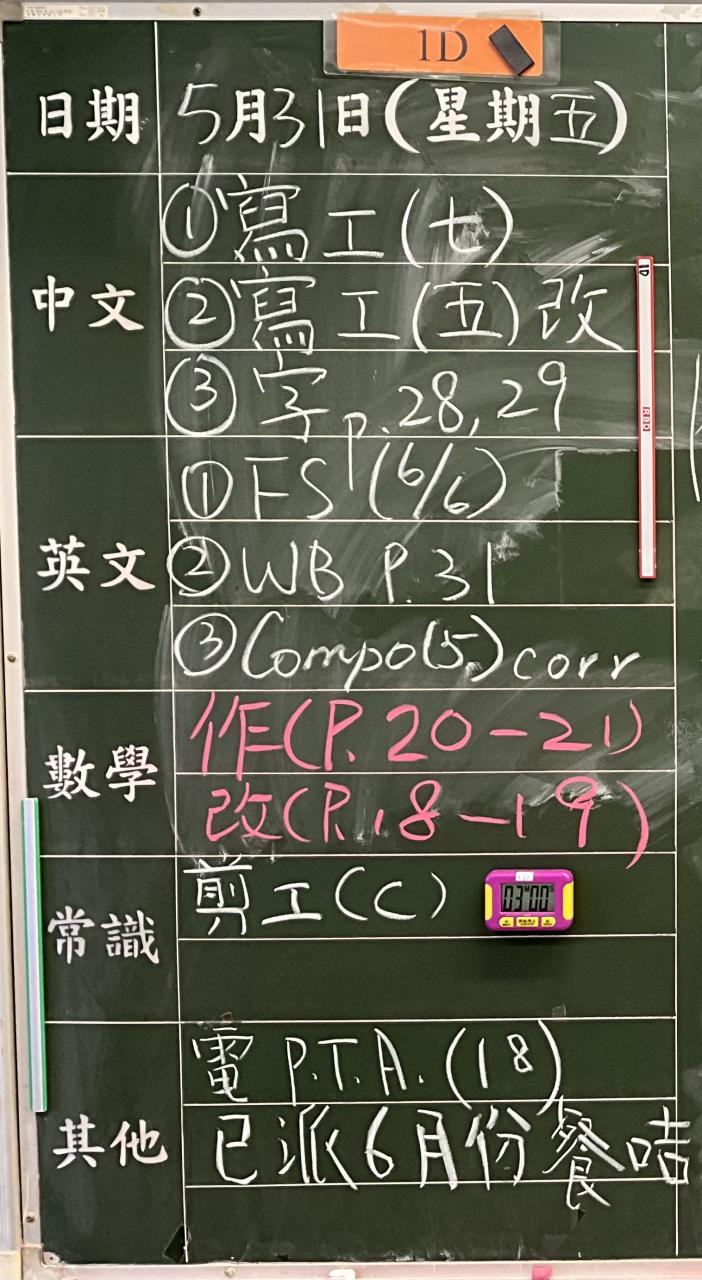 1D
日期 5月31日(星期五)
中文 ①寫工(七)
②寫工(五)改
③字p.28,29
英文 ①FS(6/6)
②WB P.31
③Compo(5)corr
數學 作(P.20-21)
改(P.18-19)
常識 剪工(C)
03M00S
其他 電 P.T.A.(18)
已派6月份餐咭
1D
RBD